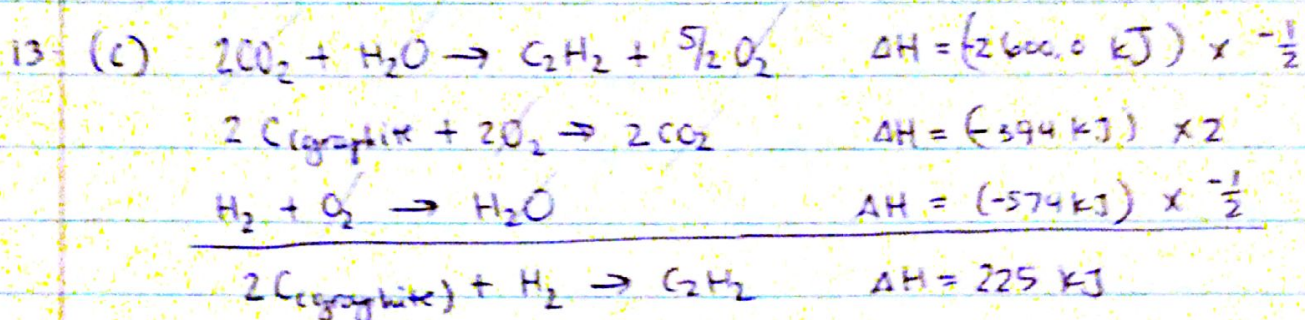 13 (c) 2CO₂ + H₂O → C₂H₂ + 5/2 O₂ ΔH = (-2600.0 kJ) x -1/2
2 C(graphite + 2O₂ → 2CO₂ ΔH = (-394 kJ) x2
H₂ + O₂ → H₂O ΔH = (-574 kJ) x -1/2
2 C(graphite) + H₂ → C₂H₂ ΔH = 225 kJ